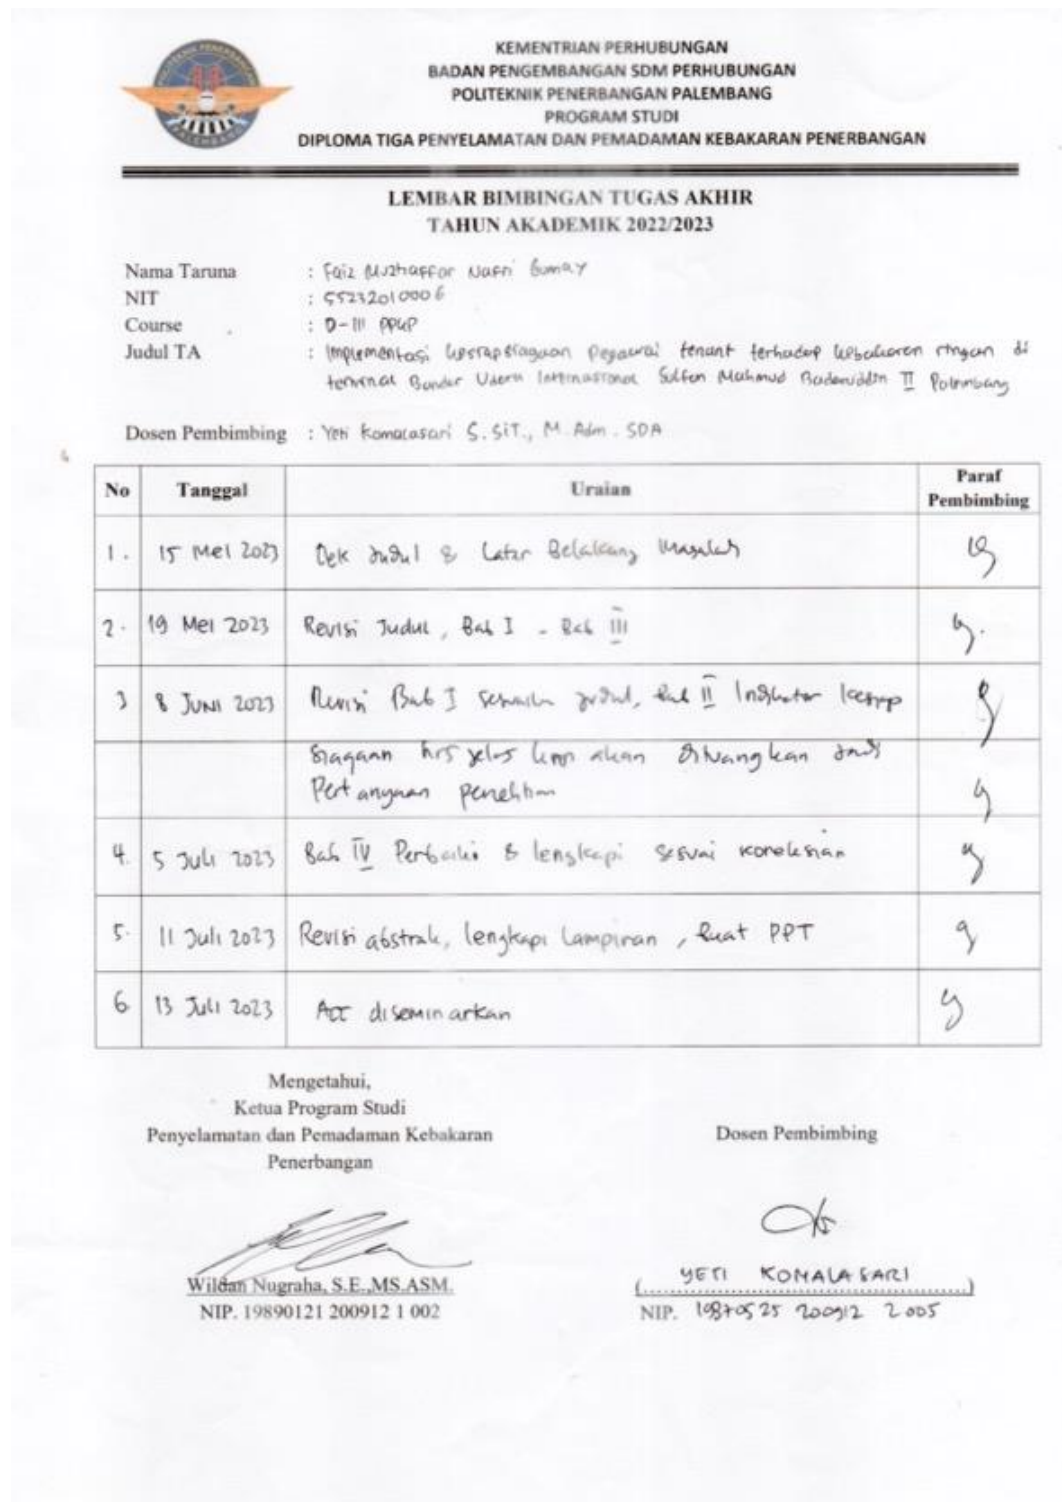 KEMENTRIAN PERHUBUNGAN
BADAN PENGEMBANGAN SDM PERHUBUNGAN
POLITEKNIK PENERBANGAN PALEMBANG
PROGRAM STUDI
DIPLOMA TIGA PENYELAMATAN DAN PEMADAMAN KEBAKARAN PENERBANGAN
LEMBAR BIMBINGAN TUGAS AKHIR
TAHUN AKADEMIK 2022/2023
Nama Taruna : Faiz Muzhaffar Nafri Gumay
NIT : 55232010006
Course : D-III PPKP
Judul TA : Implementasi kesiapsiagaan pegawai tenant terhadap kebakaran ringan di
terminal Bandar Udara Internasional Sultan Mahmud Badaruddin II Palembang
Dosen Pembimbing : Yeti Komalasari S.SiT., M.Adm.SDA
No Tanggal Uraian Paraf
Pembimbing
1. 15 Mei 2023 Cek Judul & Latar Belakang Masalah
2. 19 Mei 2023 Revisi Judul, Bab I - Bab III
3 8 Juni 2023 Revisi Bab I sesuai judul, Bab II Indikator kesiap
siagaan hrs jelas akan dituangkan jadi
Pertanyaan penelitian
4. 5 Juli 2023 Bab IV Perbaiki & lengkapi sesuai
5. 11 Juli 2023 Revisi abstrak, lengkapi Lampiran, buat PPT
6. 13 Juli 2023 Acc diseminarkan
Mengetahui,
Ketua Program Studi
Penyelamatan dan Pemadaman Kebakaran
Penerbangan
Dosen Pembimbing
Wildan Nugraha, S.E.,MS.ASM.
NIP. 19890121 200912 1 002
(YETI KOMALASARI)
NIP. 19870525 200912 2 005